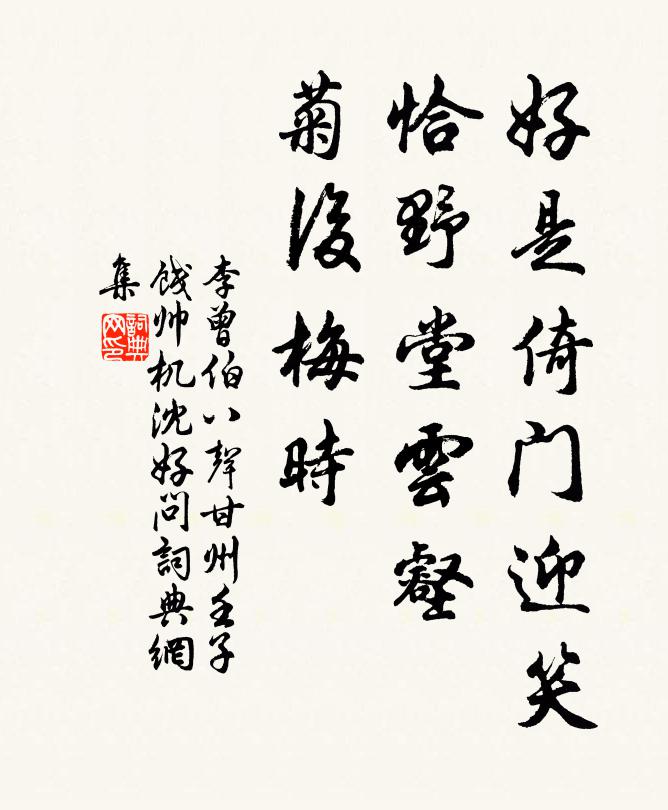 好是倚门迎笑
恰野堂雲壑
菊後梅時
李曾伯八聲甘州壬子
饯帅机沈好问詞典網
集
詞典
网印